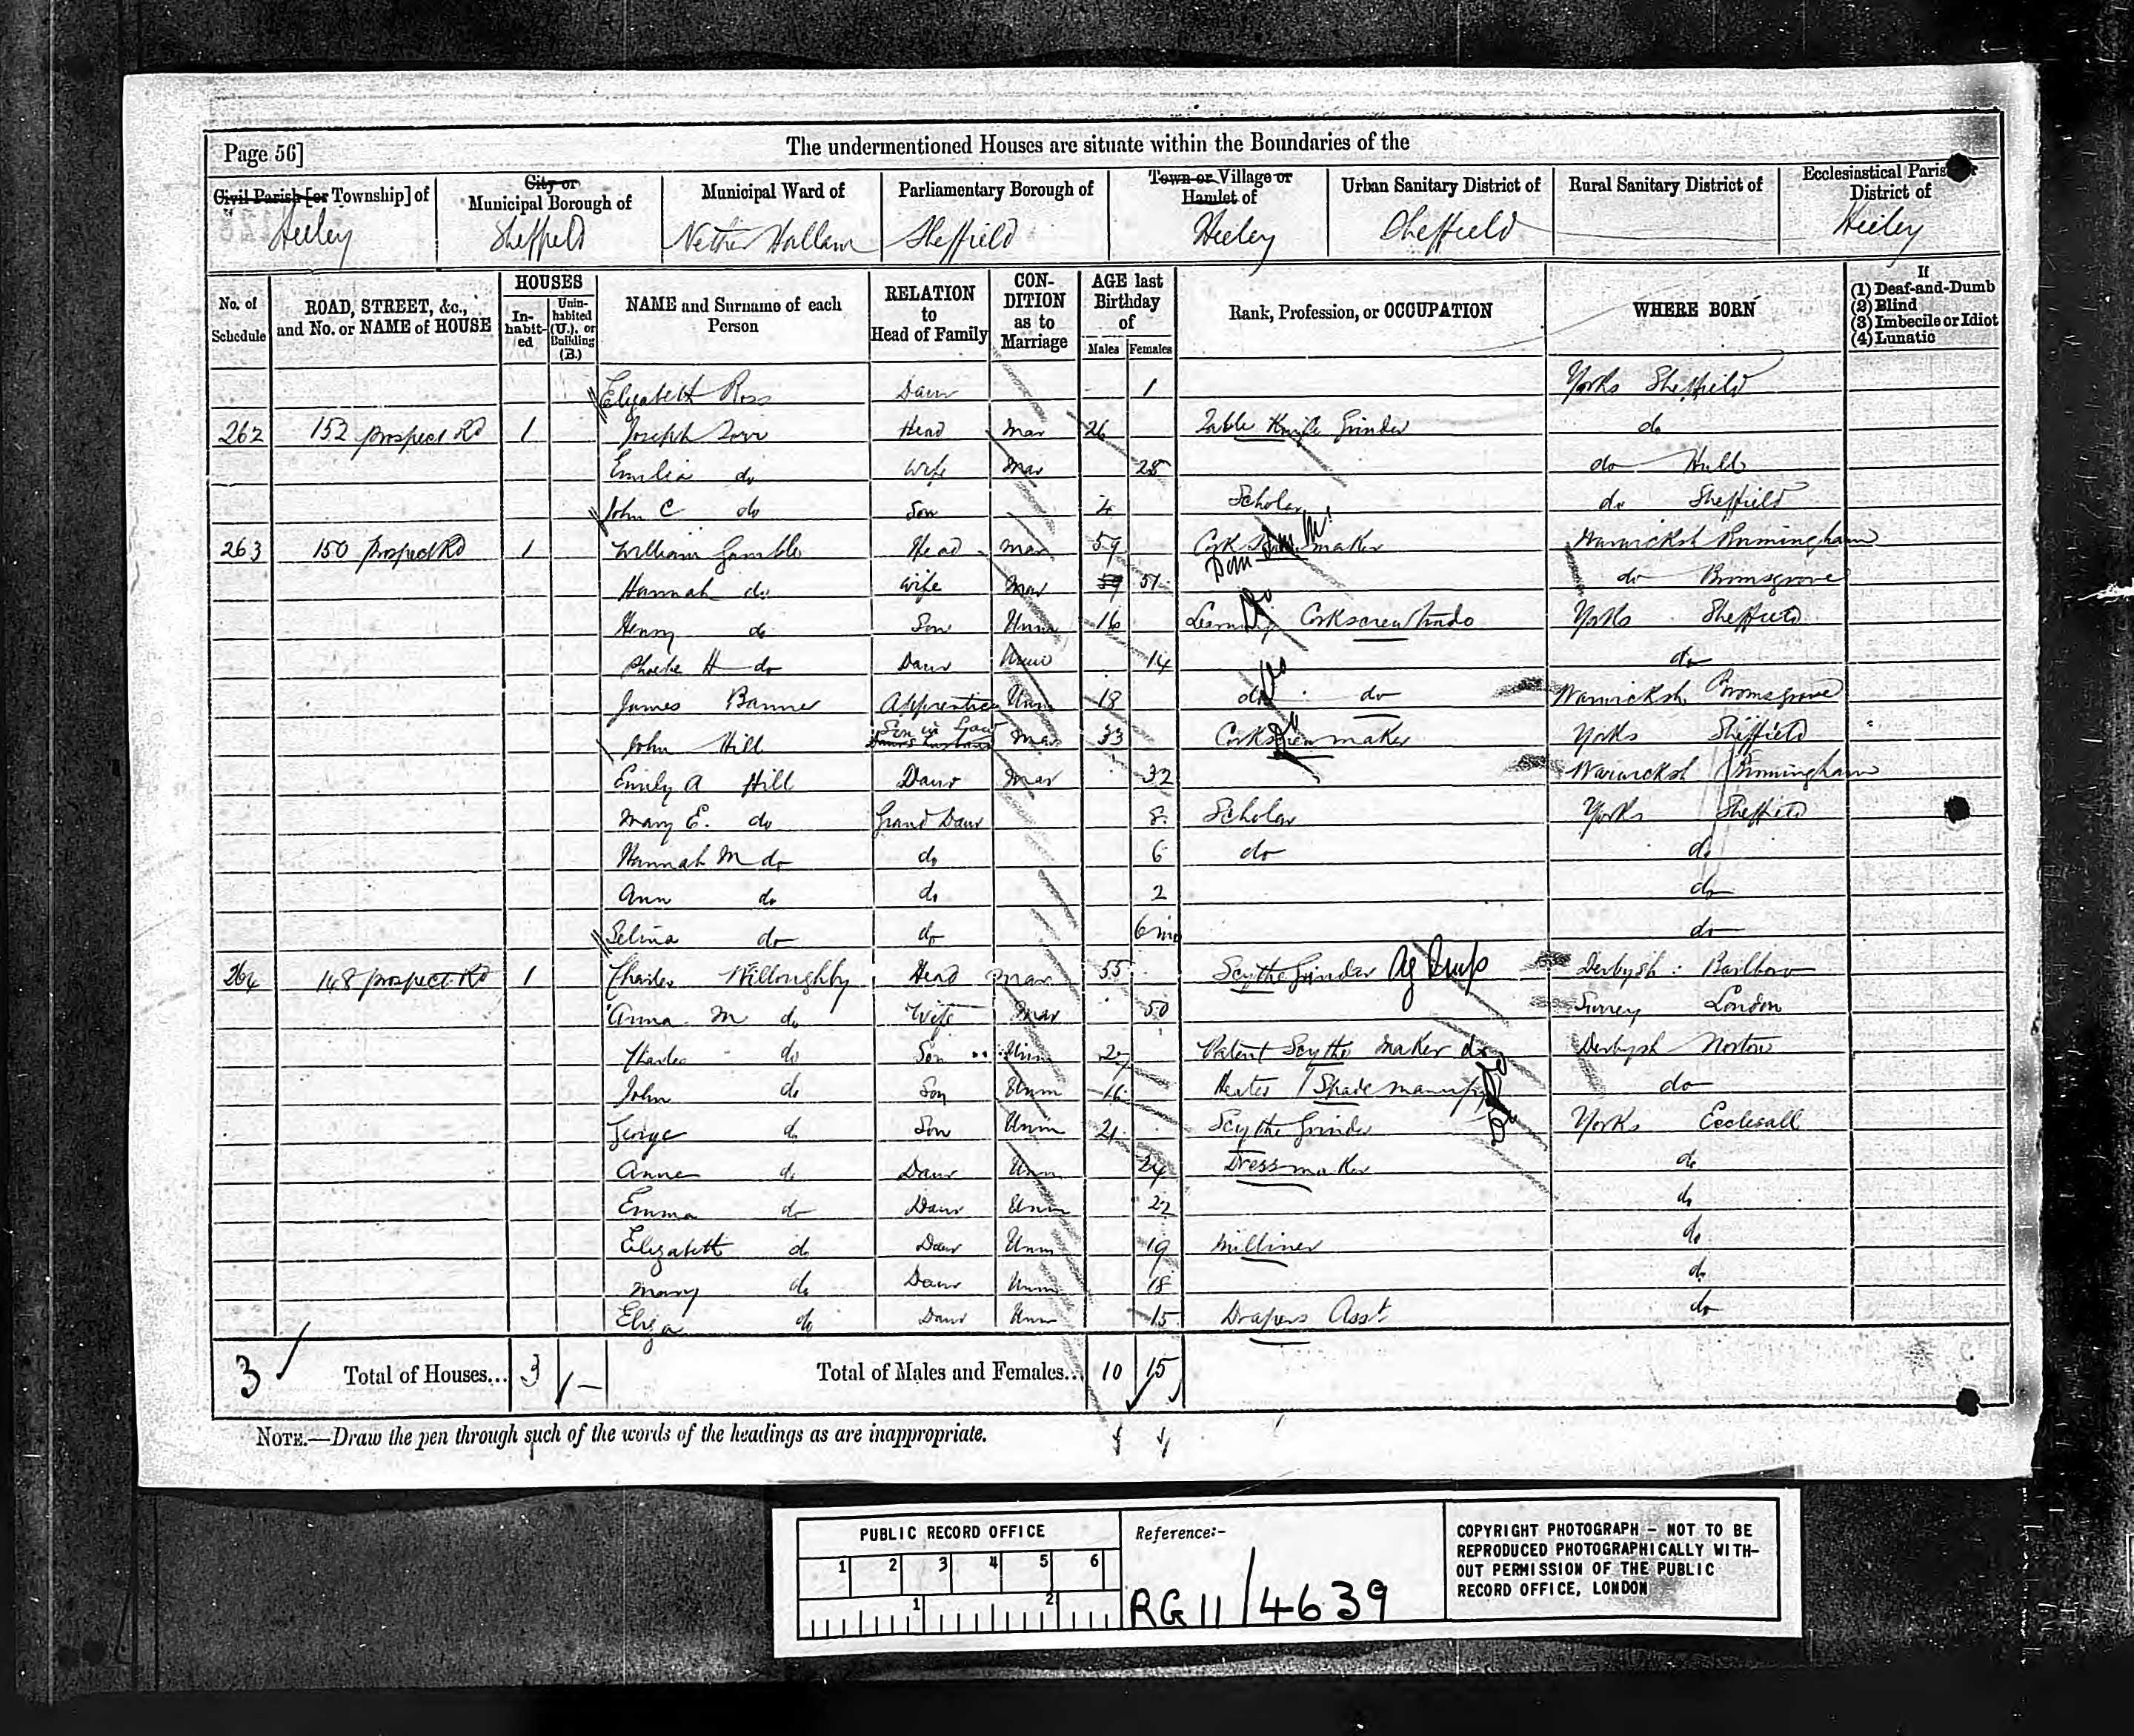 Page 56]
The undermentioned Houses are situate within the Boundaries of the
Civil Parish [or Township] of
City or Municipal Borough of
Municipal Ward of
Parliamentary Borough of
Town or Village or Hamlet of
Urban Sanitary District of
Rural Sanitary District of
Ecclesiastical Parish or District of
Heeley Sheffield Nether Hallam Sheffield Heeley Sheffield Heeley
No. of Schedule
ROAD, STREET, &c., and No. or NAME of HOUSE
HOUSES
In-habit-ed
Unin-habited (U.), or Building (B.)
NAME and Surname of each Person
RELATION to Head of Family
CON-DITION as to Marriage
AGE last Birthday of
Males Females
Rank, Profession, or OCCUPATION
WHERE BORN
If
(1) Deaf-and-Dumb
(2) Blind
(3) Imbecile or Idiot
(4) Lunatic
Elizabeth Ross Daur 1 Yorks Sheffield
262 152 Prospect Rd 1 Joseph Head Mar 26 Table Knife Grinder do
Emilia do Wife Mar 28 do Hull
John C do Son 4 Scholar do Sheffield
263 150 Prospect Rd 1 William Gamble Head Mar 59 Corkscrew maker Warwicksh Birmingham
Hannah do Wife Mar 51 do Bromsgrove
Henry do Son Unm 16 Learning Corkscrew Trade Yorks Sheffield
Phoebe H do Daur Unm 14 do
James Banner Apprentice Unm 18 do do Warwicksh Bromsgrove
John Hill Son in Law Mar 33 Corkscrew maker Yorks Sheffield
Emily A Hill Daur Mar 32 Warwicksh Birmingham
Mary E. do Grand Daur 8 Scholar Yorks Sheffield
Hannah M do do 6 do do
Ann do do 2 do
Selina do do 6 mo do
264 148 Prospect Rd 1 Charles Willoughby Head Mar 55 Scythe Grinder Ag Imp Derbysh: Barlbow
Anna M do Wife Mar 50 Surrey London
Charles do Son Unm 27 Patent Scythe Maker do Derbysh Norton
John do Son Unm 16 Heater / Spade manufy do
George do Son Unm 21 Scythe Grinder Yorks Ecclesall
Anne do Daur Unm 24 Dressmaker do
Emma do Daur Unm 22 do
Elizabeth do Daur Unm 19 Milliner do
Mary do Daur Unm 18 do
Eliza do Daur Unm 15 Drapers Asst do
3 Total of Houses... 3 – Total of Males and Females... 10 15
NOTE.—Draw the pen through such of the words of the headings as are inappropriate.
PUBLIC RECORD OFFICE
1 2 3 4 5 6
1 2
Reference:-
RG 11/4639
COPYRIGHT PHOTOGRAPH – NOT TO BE
REPRODUCED PHOTOGRAPHICALLY WITH-
OUT PERMISSION OF THE PUBLIC
RECORD OFFICE, LONDON